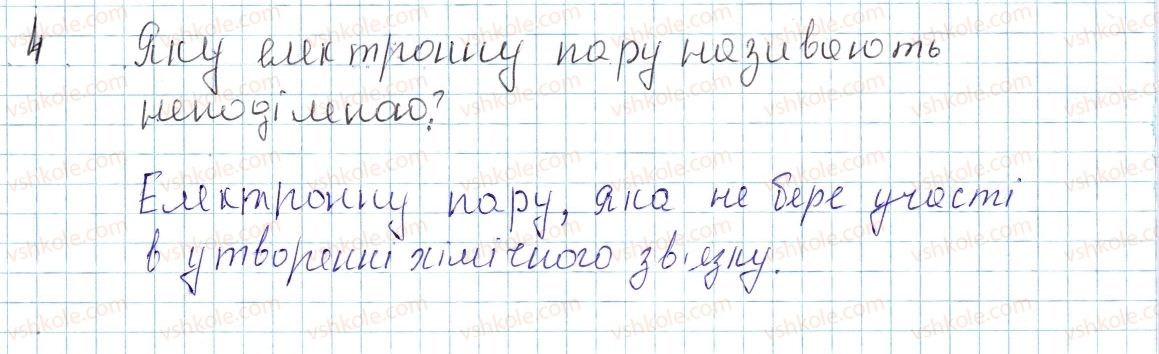 4. Яку електронну пару називають
неподіленою?
Електронну пару, яка не бере участі
в утворенні хімічного зв'язку.
vshkole.com